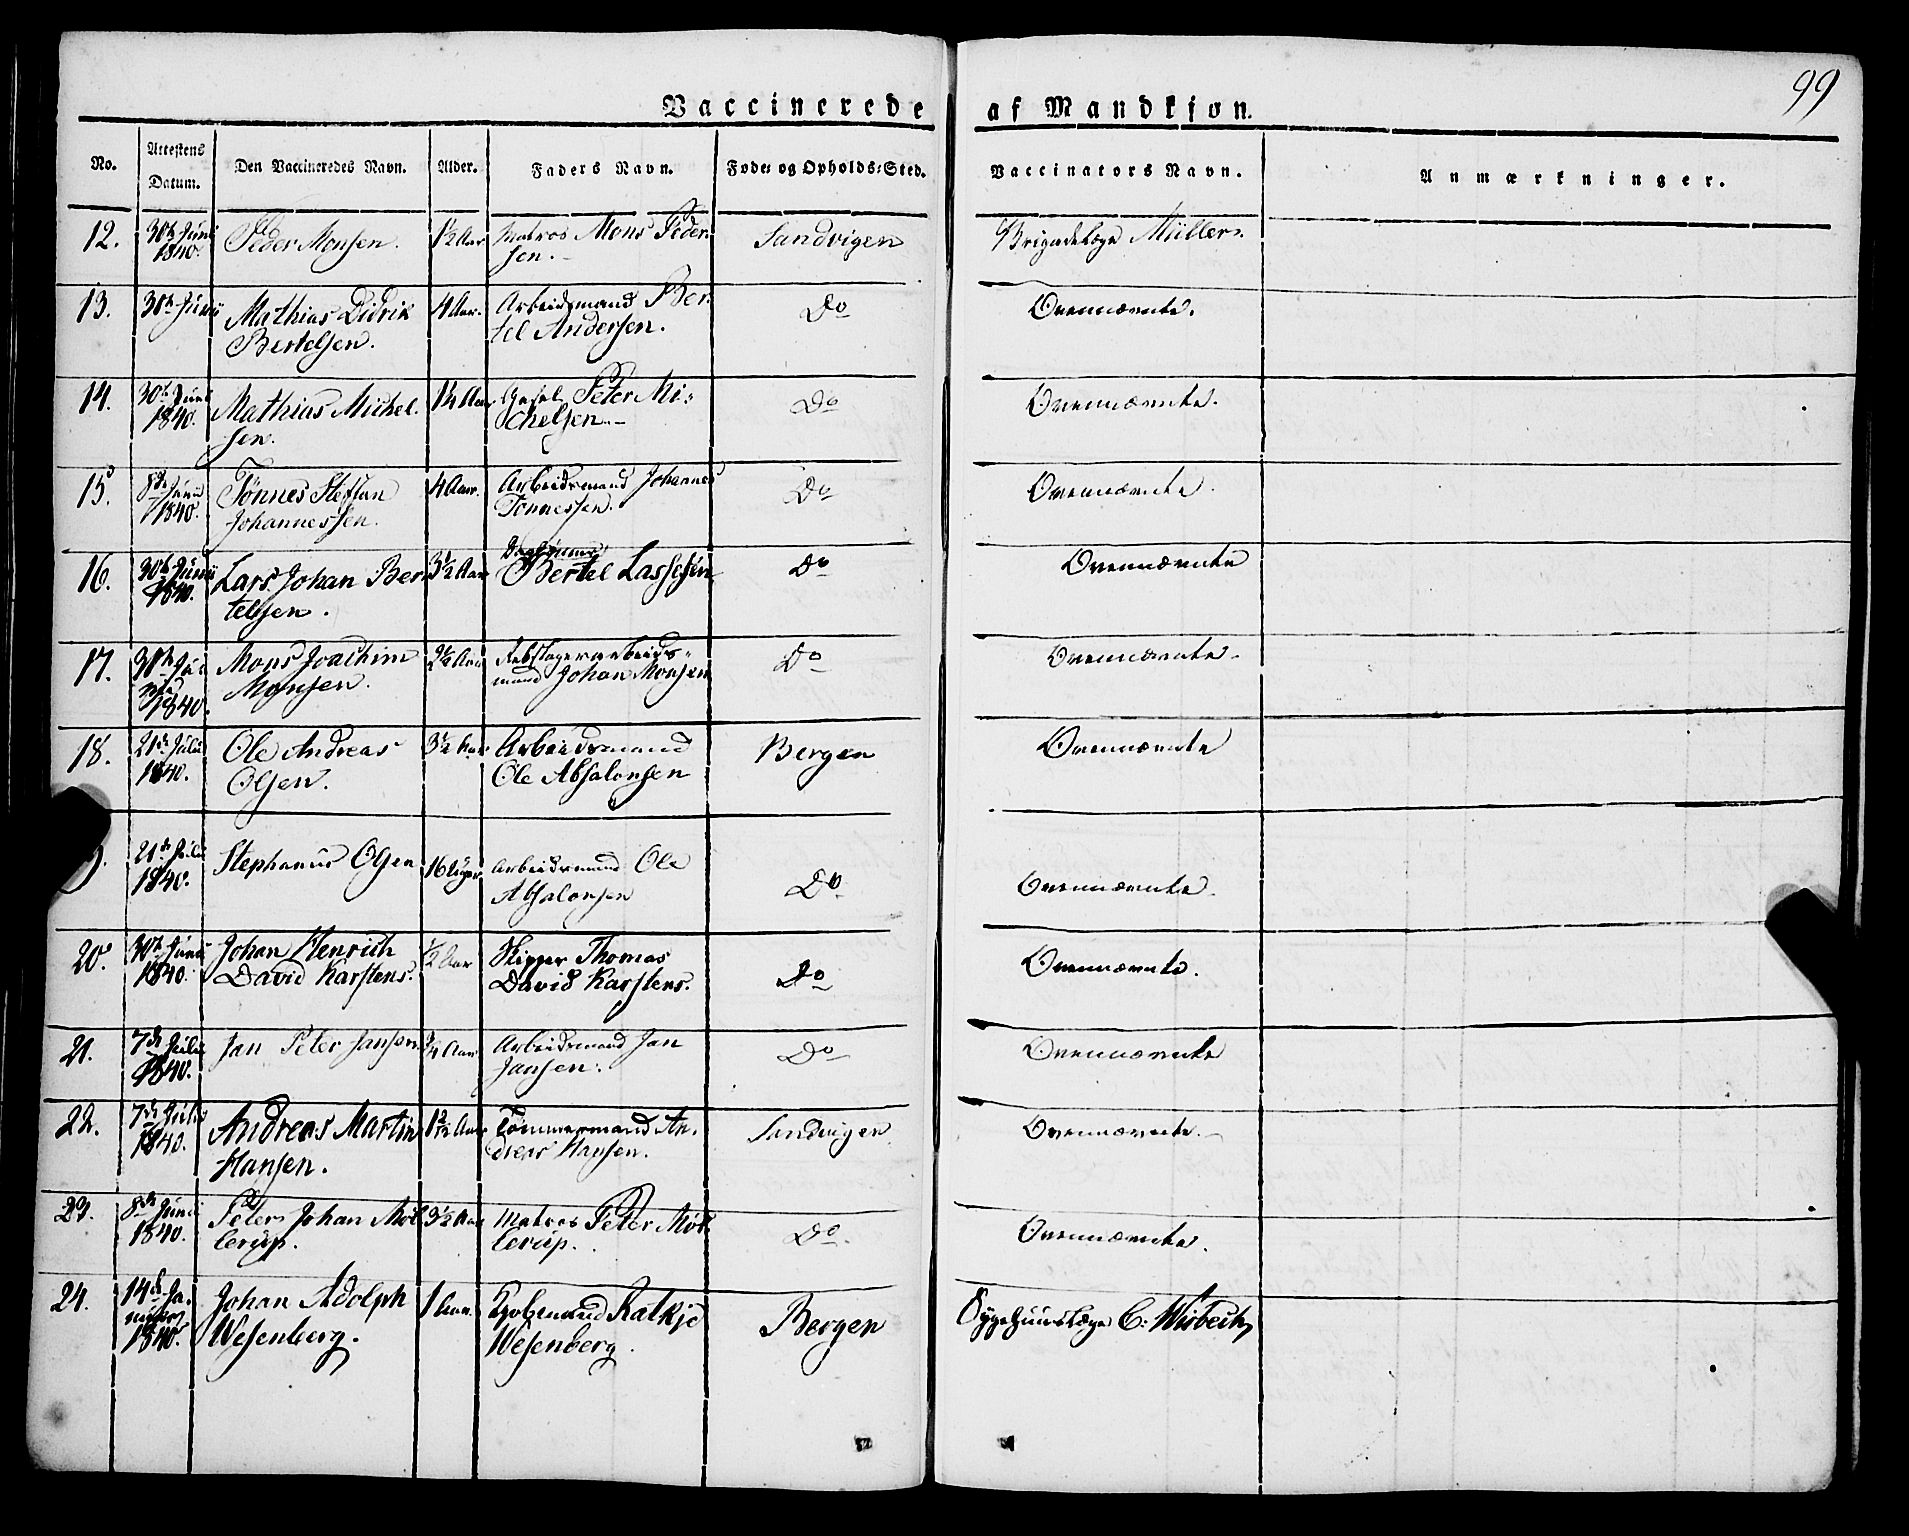 99
Vaccinerede af Mandkjøn.
No. Attestens Datum. Den Vaccineredes Navn. Alder. Faders Navn. Føde- og Opholds-Sted. Vaccinators Navn. Anmærkninger.
12. 30te Juni 1840. Peder Monsen. 1½ Aar Matros Mons Pedersen. Sandvigen Brigadelæge Müller.
13. 30te Junii Mathias Didrik Bertelsen. 4 Aar. Arbeidsmand Bertel Andersen. Do Ovennævnte.
14. 30te Juni 1840. Mathias Michelsen. 1¼ Aar Peter Michelsen. Do Ovennævnte.
15. 8de Junii 1840. Tønnes Steffan Johannessen. 4 Aar. Arbeidsmand Johannes Tønnessen. Do Ovennævnte.
16. 30te Junii 1840. Lars Johan Bertelsen. 3½ Aar Bertel Lassesen Do Ovennævnte
17. 30te Junii 1840. Mons Joachim Monsen. 2½ Aar Rebslagerarbeidsmand Johan Monsen Do Ovennævnte.
18. 21de Julii 1840. Ole Andreas Olsen. 3½ Aar Arbeidsmand Ole Absalonsen Bergen Ovennævnte
21de Julii 1840. Stephanus Olsen 16 Uger. Arbeidsmand Ole Absalonsen Do Ovennævnte.
20. 30te Junii 1840. Johan Henrich David Karstens. ½ Aar Skipper Thomas David Karstens. Do Ovennævnte.
21. 7de Julii 1840. Jan Peter Jansen ¾ Aar Arbeidsmand Jan Jansen. Do Ovennævnte
22. 7de Julii 1840. Andreas Martin Hansen. Aar Tømmermand Andreas Hansen. Sandvigen Ovennævnte.
23. 8de Junii 1840. Peter Johan Møllerup. 3½ Aar Matros Peter Møllerup. Do. Ovennævnte.
24. 14de Januar 1840. Johan Adolph Wesenberg. 1 Aar. Kjøbmand Ratkje Wesenberg. Bergen Sygehuuslæge C: Wisbech